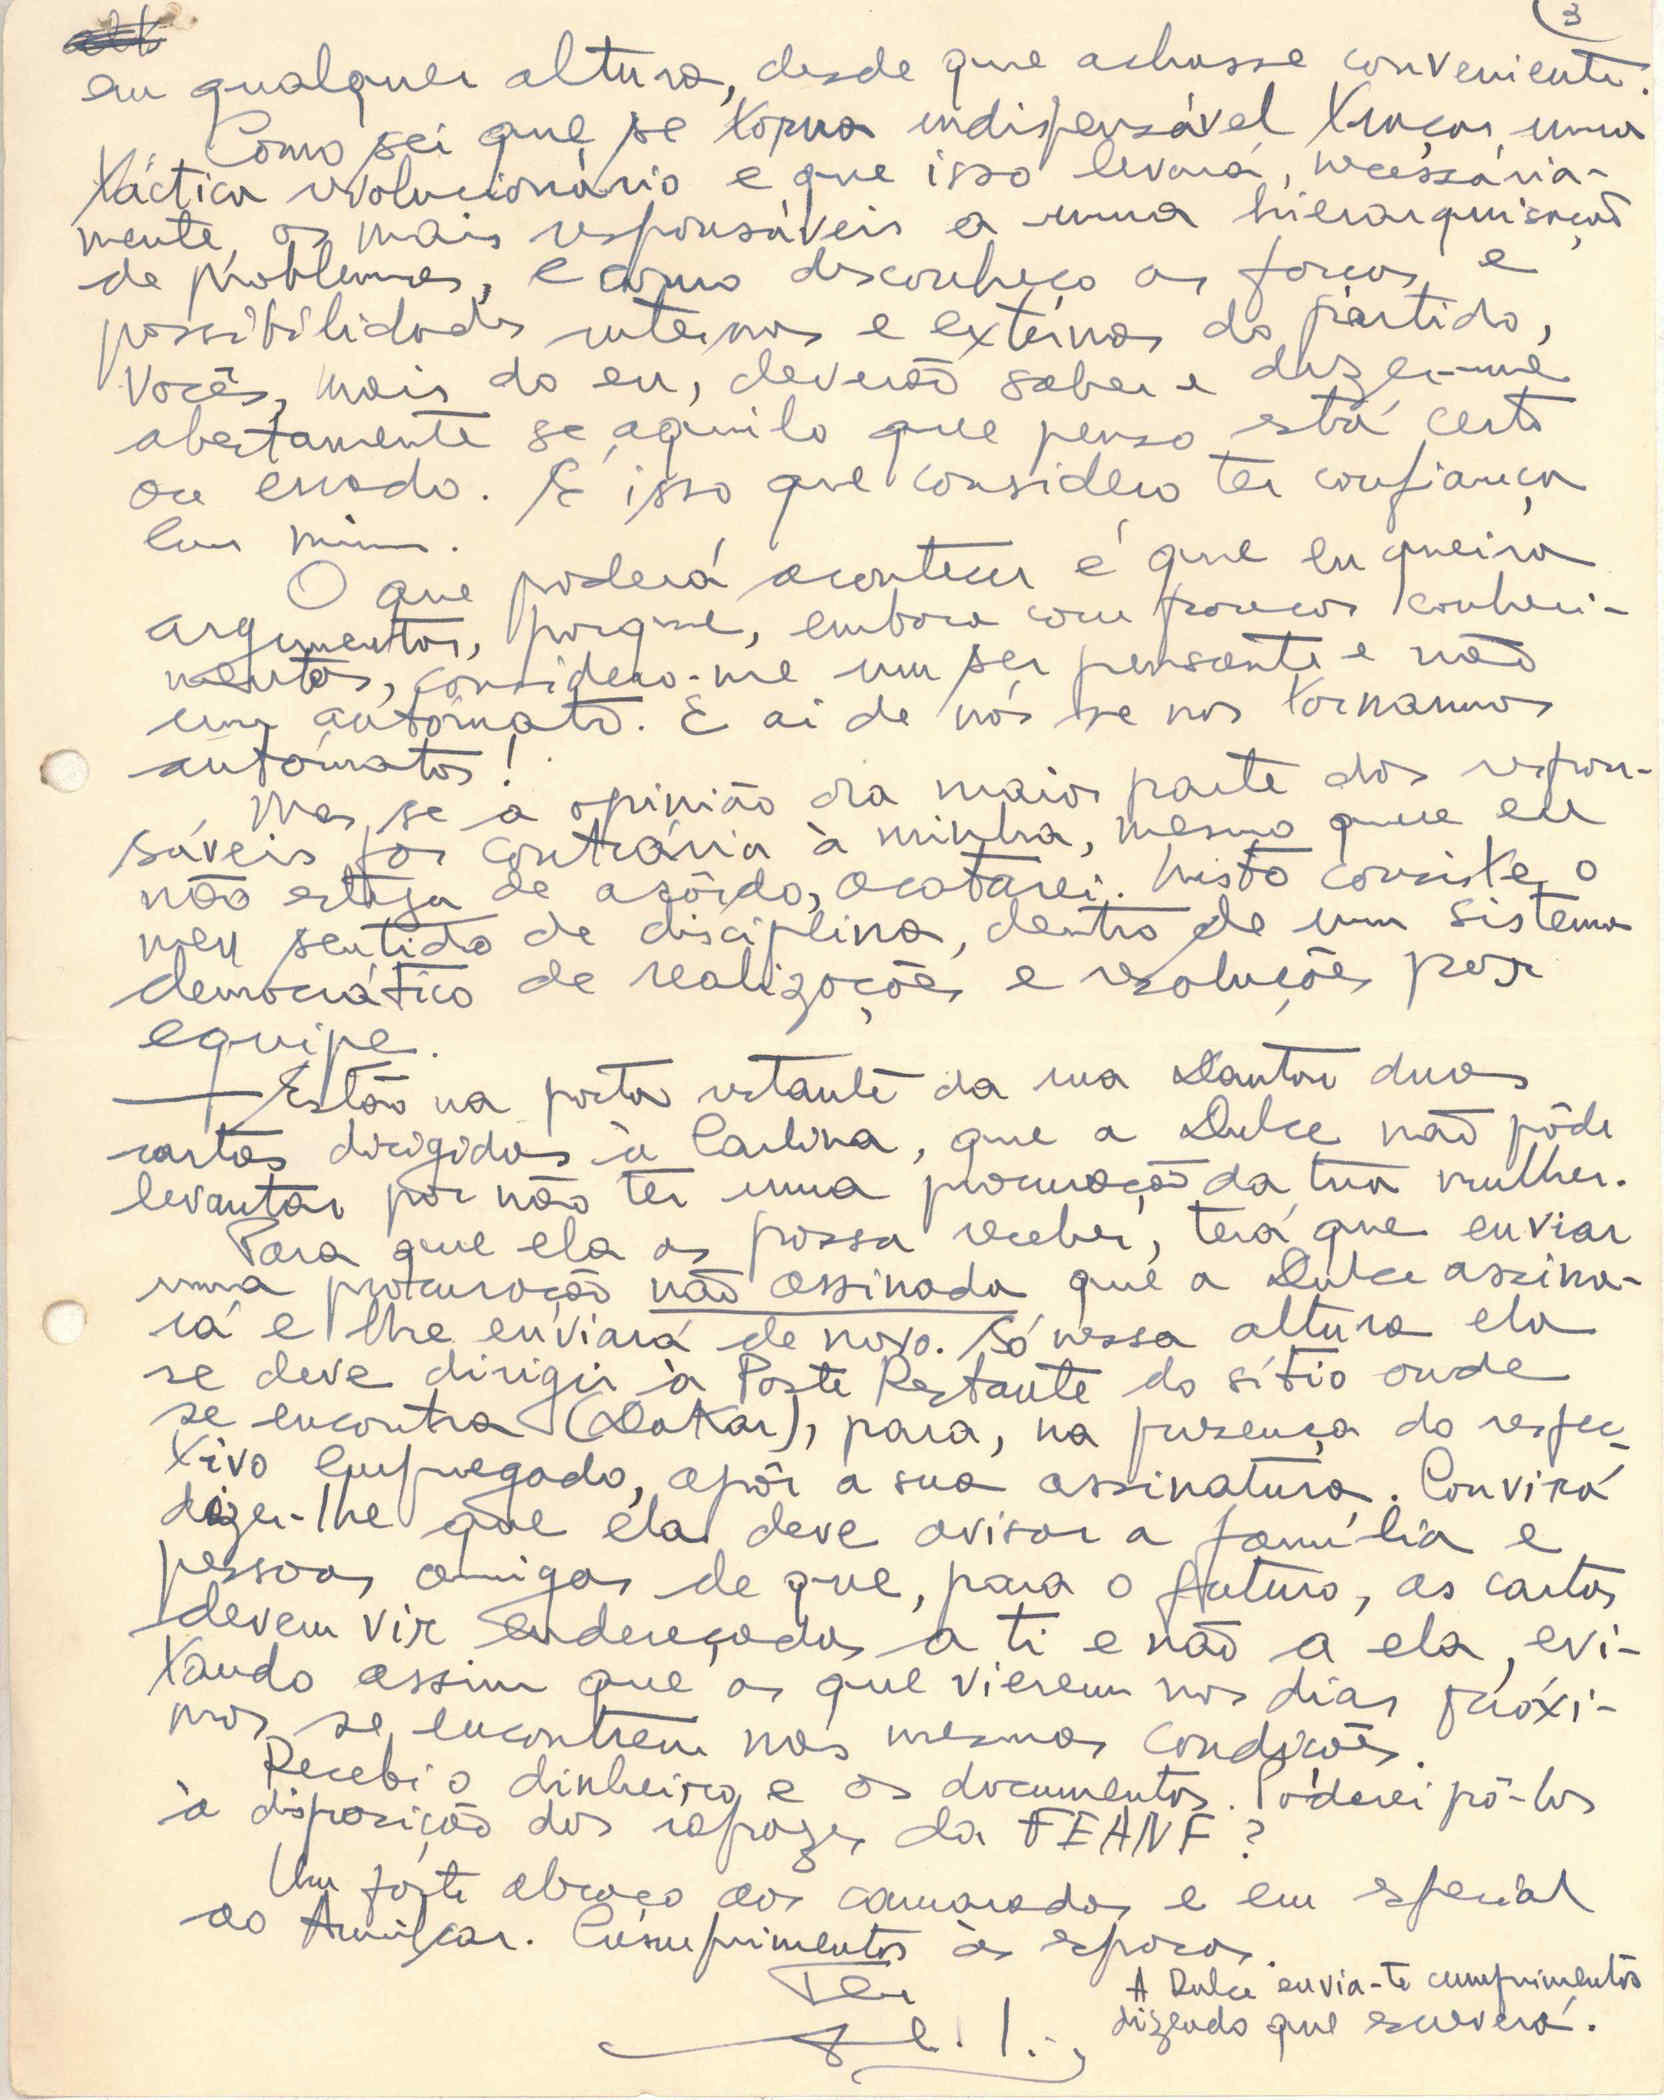 3
em qualquer altura, desde que achasse conveniente.
Como sei que se torna indispensável traçar uma
táctica revolucionário e que isso levará, necessária-
mente, os mais responsáveis a uma hierarquisação
de problemas, e como desconheço as forças e
possibilidades internas e externas do partido,
vocês, mais do eu, deverão saber e dizer-me
abertamente se aquilo que penso está certo
ou errado. É isso que considero ter confiança
em mim.
O que poderá acontecer é que eu queira
argumentos, porque, embora com poucos conheci-
mentos, considero-me um ser pensante e não
um autómato. E ai de nós se nos tornarmos
autómatos!
Mas se a opinião da maior parte dos respon-
sáveis for contrária à minha, mesmo que eu
não esteja de acôrdo, acatarei. Nisto consiste o
meu sentido de disciplina, dentro de um sistema
democrático de realizações e resoluções por
equipe.
— Estão na posta restante da rua Danton duas
cartas dirigidas à Carlina, que a Dulce não pôde
levantar por não ter uma procuração da tua mulher.
Para que ela as possa receber, terá que enviar
uma procuração não assinada que a Dulce assina-
rá e lhe enviará de novo. Só nessa altura ela
se deve dirigir à Poste Restante do sítio onde
se encontra (Dakar), para, na presença do respec-
tivo empregado, apôr a sua assinatura. Convirá
dizer-lhe que ela deve avisar a família e
pessoas amigas de que, para o futuro, as cartas
devem vir endereçadas a ti e não a ela, evi-
tando assim que as que vierem nos dias próxi-
mos se encontrem nas mesmas condições.
Recebi o dinheiro e os documentos. Poderei pô-los
à disposição dos rapazes da FEANF?
Um forte abraço aos camaradas e em especial
ao Amílcar. Cumprimentos às esposas.
Teu
A Dulce envia-te cumprimentos
dizendo que escreverá.